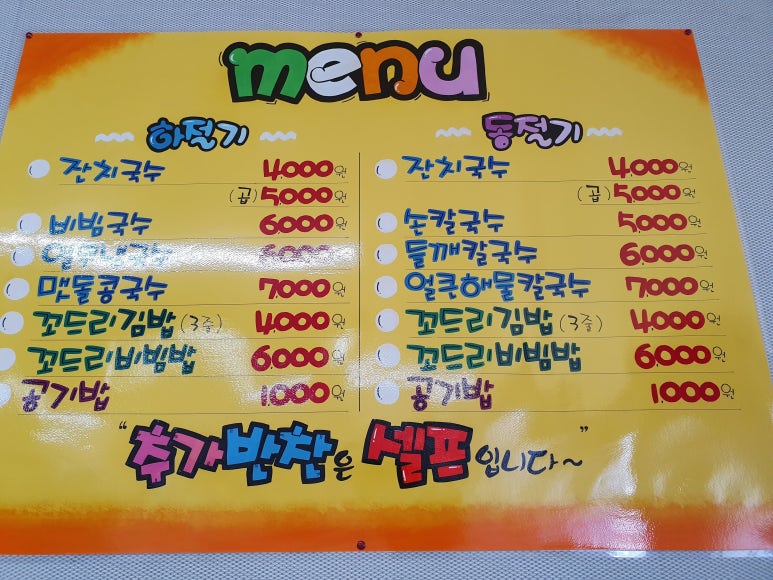 menu
하절기
잔치국수 4,000원
(곱) 5,000원
비빔국수 6,000원
열무냉국수 6,000원
맷돌콩국수 7,000원
꼬드리김밥 (3줄) 4,000원
꼬드리비빔밥 6,000원
공기밥 1,000원
동절기
잔치국수 4,000원
(곱) 5,000원
손칼국수 5,000원
들깨칼국수 6,000원
얼큰해물칼국수 7,000원
꼬드리김밥 (3줄) 4,000원
꼬드리비빔밥 6,000원
공기밥 1,000원
"추가반찬은 셀프입니다~"